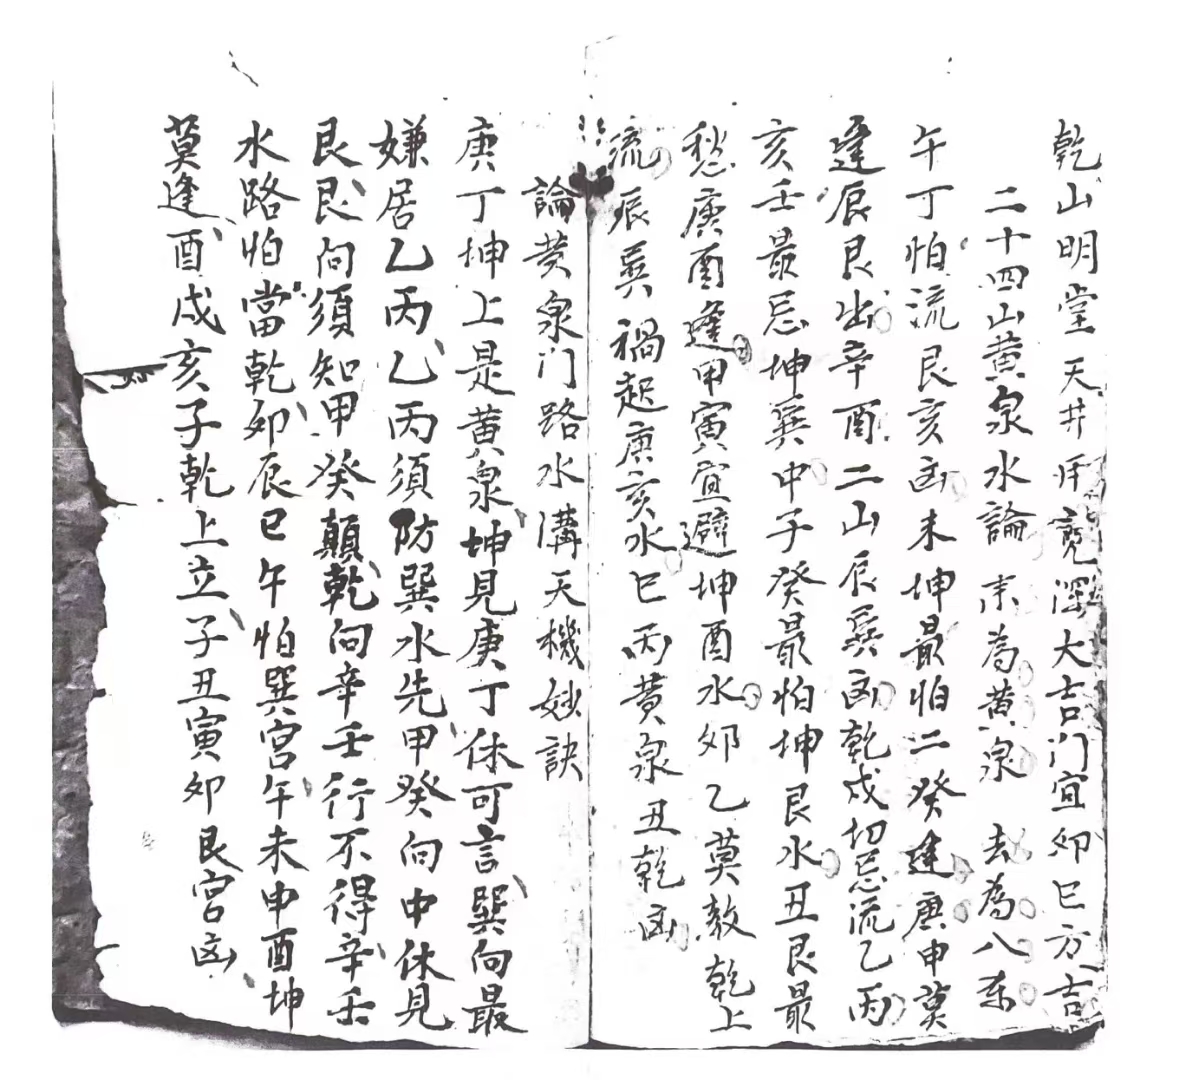 乾山明堂天井宜寬深大吉门宜卯巳方吉
二十四山黄泉水論 來為黄泉 去為八煞
午丁怕流艮亥凶未坤最怕二癸逢庚申莫
逢辰艮出辛酉二山辰巽凶乾戍切忌流乙丙
亥壬最忌坤巽中子癸最怕坤艮水丑艮最
愁庚酉逢甲寅宜避坤酉水卯乙莫教乾上
流辰巽禍起庚亥水巳丙黄泉丑乾凶
論黄泉门路水溝天機妙訣
庚丁坤上是黄泉坤見庚丁休可言巽向最
嫌居乙丙乙丙須防巽水先甲癸向中休見
艮艮向須知甲癸顛乾向辛壬行不得辛壬
水路怕當乾卯辰巳午怕巽宫午未申酉坤
莫逢酉戍亥子乾上立子丑寅卯艮宫凶